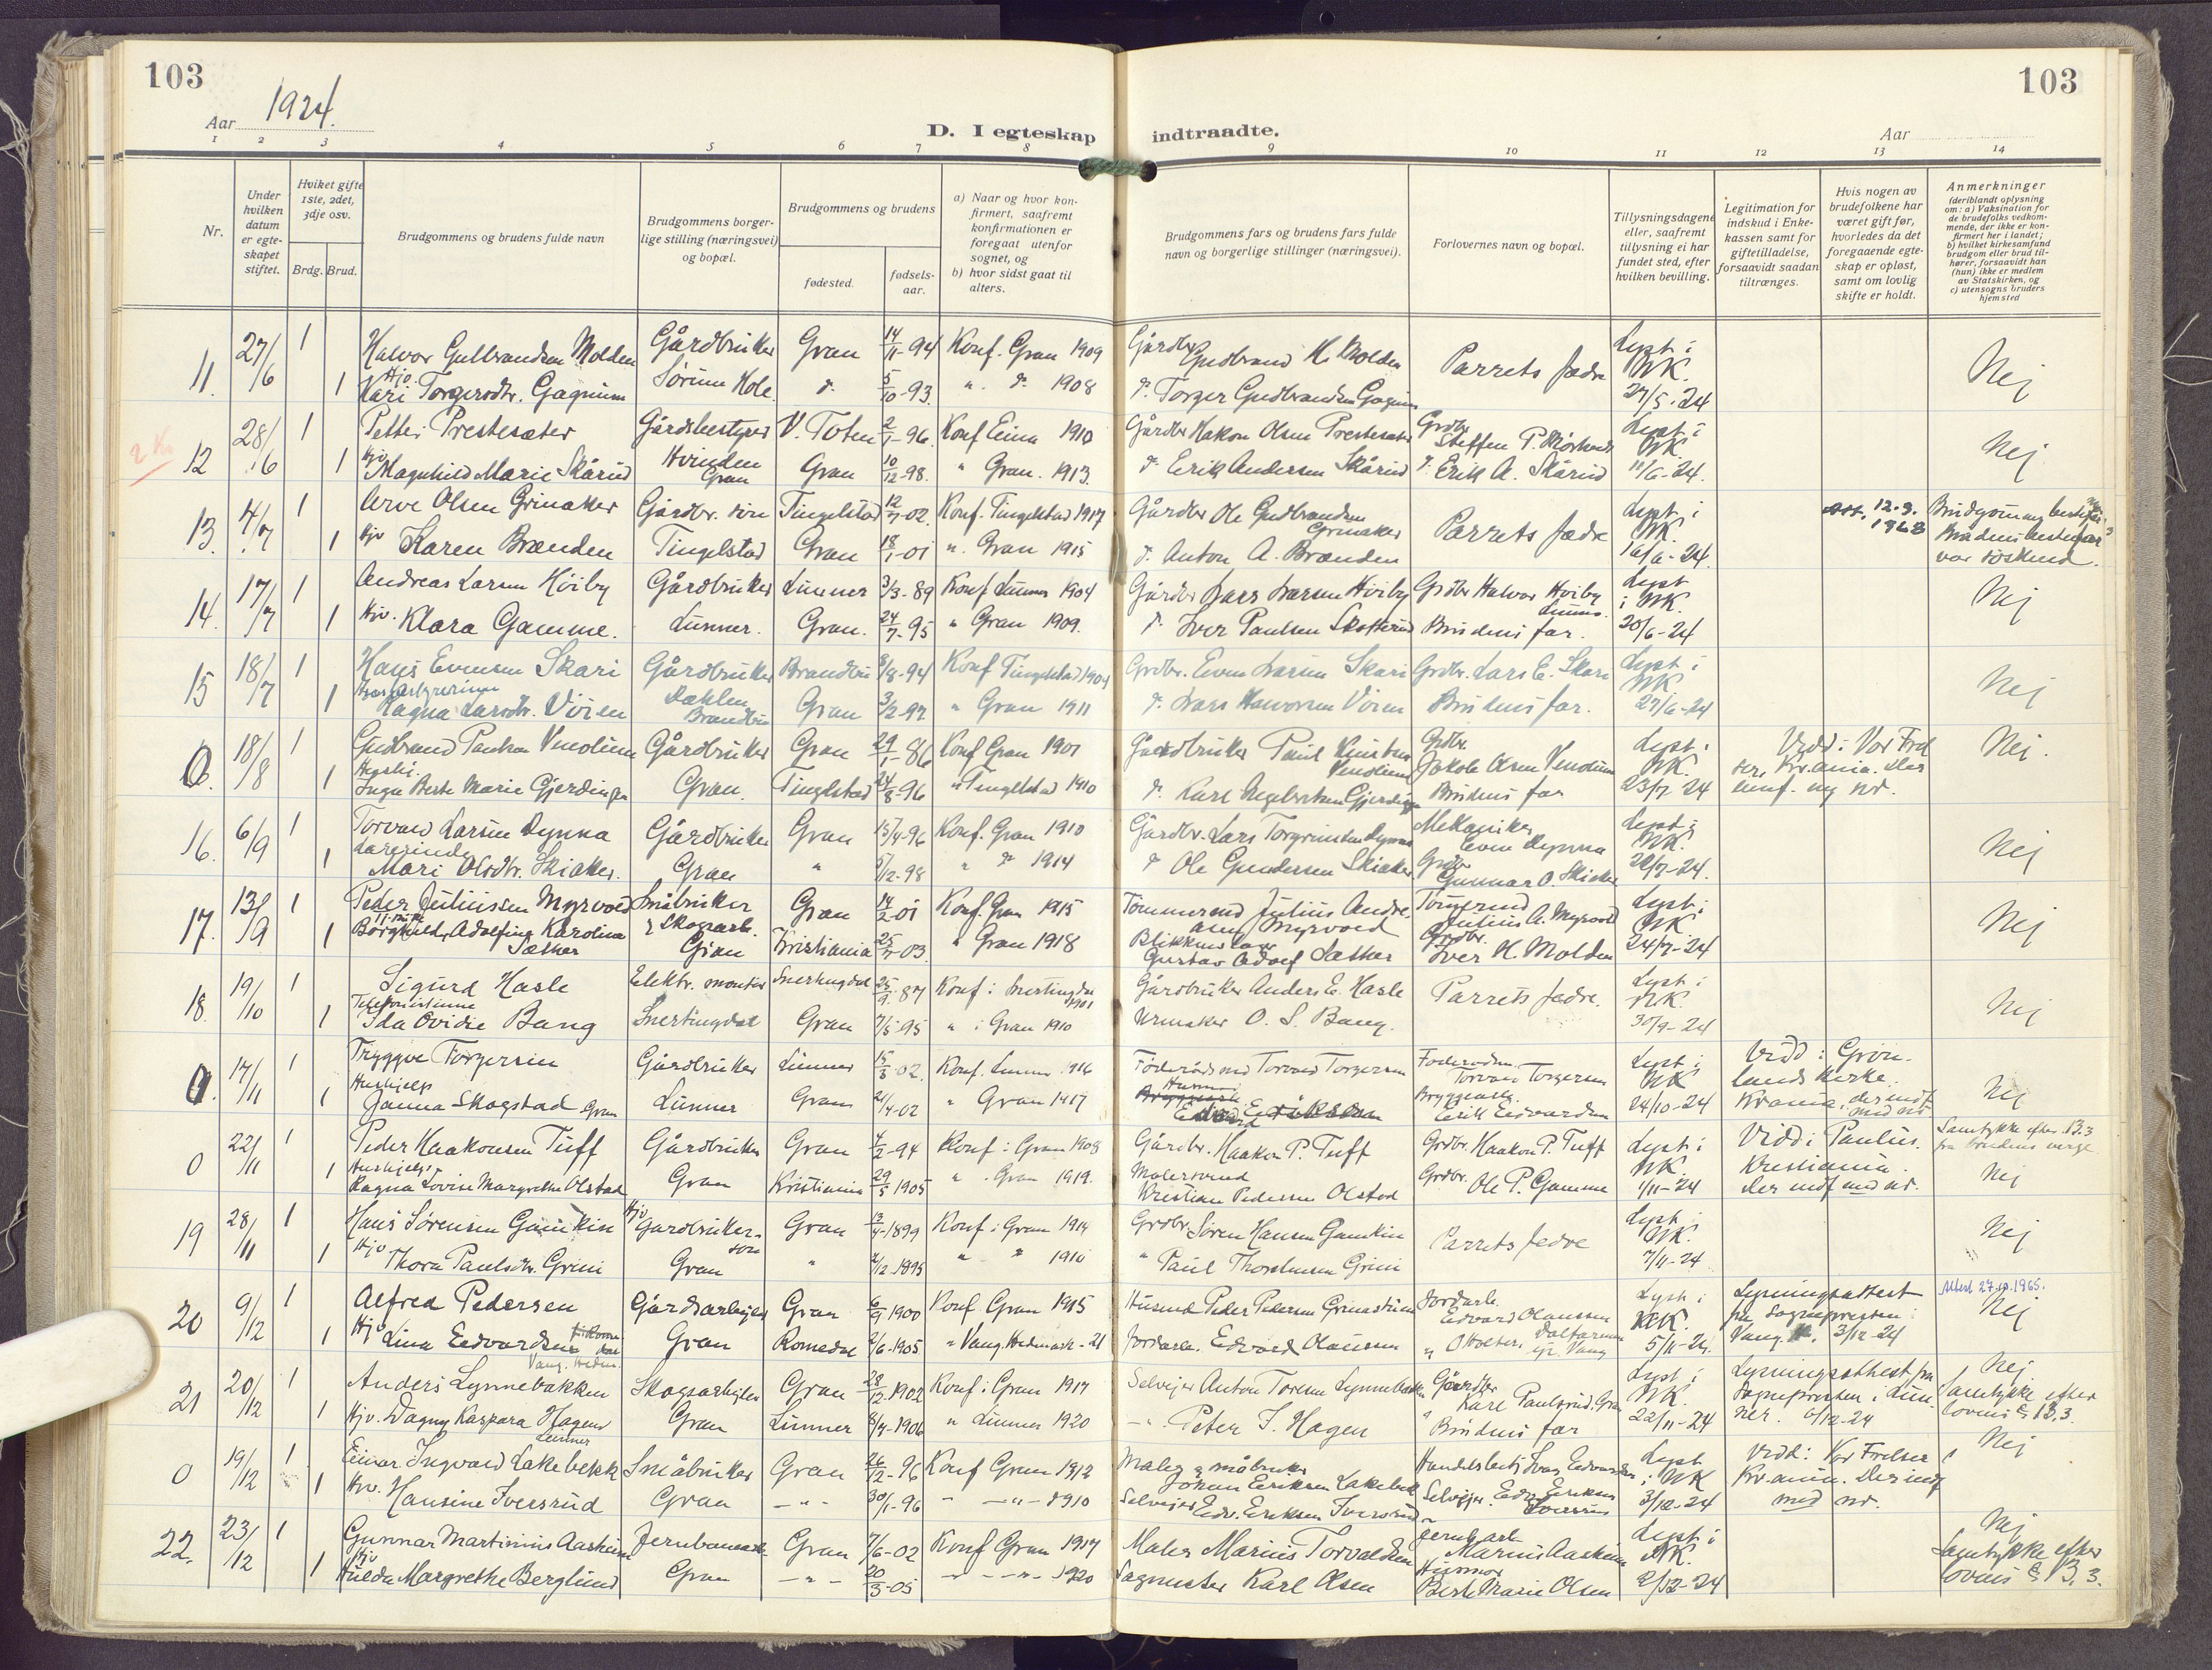 103
103
Aar 1924.
D. I egteskap indtraadte.
Aar
1 2 3 4 5 6 7 8 9 10 11 12 13 14
Nr.
Under hvilken datum er egteskapet stiftet.
Hviket gifte 1ste, 2det, 3dje osv.
Brdg. Brud.
Brudgommens og brudens fulde navn
Brudgommens borgerlige stilling (næringsvei) og bopæl.
Brudgommens og brudens
fødested.
fødselsaar.
a) Naar og hvor konfirmert, saafremt konfirmationen er foregaat utenfor sognet, og
b) hvor sidst gaat til alters.
Brudgommens fars og brudens fars fulde navn og borgerlige stillinger (næringsvei).
Forlovernes navn og bopæl.
Tillysningsdagene eller, saafremt tillysning ei har fundet sted, efter hvilken bevilling.
Legitimation for indskud i Enkekassen samt for giftetilladelse, forsaavidt saadan tiltrænges.
Hvis nogen av brudefolkene har været gift før, hvorledes da det foregaaende egteskap er opløst, samt om lovlig skifte er holdt.
Anmerkninger (deriblandt oplysning om: a) Vaksination for de brudefolks vedkommende, der ikke er konfirmert her i landet; b) hvilket kirkesamfund brudgom eller brud tilhører, forsaavidt han (hun) ikke er medlem av Statskirken, og c) utensogns bruders hjemsted
11. 27/6 1 Halvor Gulbrandsen Molden Gårdbruker Gran 14/11-94 Konf. Gran 1909 Gårdbr. Gudbrand H. Molden Parrets fædre Lyst i NK. 27/5-24 Nej
1 Hjv. Kari Torgersdtr. Gagnum Sørum Hole d. 5/10-93. " d. 1908 d. Torger Gudbrandsen Gagnum
12 28/6 1 Petter Prestesæter Gårdsbestyrer V. Toten 2/1-96. Konf Eina 1910 Gårdbr Hakon Olsen Prestesæter Grdbr. Steffen P. Lyst i NK 11/6-24. Nej
1 Hjv Magnhild Marie Skårud Hvinden Gran Gran 10/12-98. " Gran. 1913. d. Erik Andersen Skårud d. Erik A. Skårud
13. 4/7 1 Arve Olsen Grinaker Gårdbr. søn Tingelstad 12/7-02. Konf. Tingelstad 1917 Gårdbr Ole Gudbrandsen Grinaker Parrets fædre Lyst i NK. 16/6-24. 12.3. 1968 Brudgommens bestefar & Brudens bestefar var søskend.
1 Hjv Karen Brænden Tingelstad Gran 18/1-01 " Gran 1915 d. Anton A. Brænden
14. 17/7 1 Andreas Larsen Høiby Gårdbruker Lunner 3/3-89 Konf Lunner 1904 Gårdbr Lars Larsen Høiby Grdbr Halvor Høiby Lunner. Lyst i NK. 20/6-24 Nej
1 Hjv. Klara Gamme. Lunner. Gran. 24/7-95 " Gran 1909. d. Iver Paulsen Skotterud Brudens far.
15 18/7 1 Hans Evensen Skari Gårdbruker Brandbu 8/8-94 Konf Tingelstad 1909 Grdbr. Even Larsen Skari Grdbr. Lars E. Skari Lyst i NK 27/6-24 Nej
1 Ragna Larsdtr. Vøien Dæhlen Brandbu Gran 3/2-97 " Gran 1911 d. Lars Halvorsen Vøien Brudens far.
0. 18/8 1 Gudbrand Paulsen Venolium Gårdbruker Gran 29/1-86 Konf Gran 1901 Gaardbruker Paul Knutsen Venolium Grdbr. Jakob Olsen Venolium Lyst i NK. 23/7 24 Vidd i Vor Frelsers, Kr.ania. Der innf. og nr. Nej.
1 Inga Berte Marie Gjerdingen Gran. Tingelstad 24/8-96 " Tingelstad 1910 d. Karl Engebretsen Gjerdingen Brudens far
16. 6/9 1 Torvald Larsen Dynna Gårdbruker Gran 15/4-96 Konf. Gran 1910 Gårdbr. Lars Torgrimsen Dynna Mekaniker Even Dynna Lyst i NK. 20/7-24. Nej
1 Lærerinde Mari Olsdtr. Skiaker. Gran " 5/12-98 " d 1914 d Ole Gundersen Skiaker Grdbr Gunnar O. Skiaker
17. 13/9 1 Peder Juliussen Myrvold Småbruker & Skogsarb. Gran 14/2-01 Konf. Gran 1915 Tømmermd Julius Andreasen Myrvold Tømmermd Julius A. Myrvold Lyst i NK 24/7-24 Nej
1 Borghild Adolfine Karoline Sæther Gran Kristiania 25/7-03. " Gran 1918 Blikkenslager Gustav Adolf Sæther Grdbr. Iver H. Molden
18. 19/10 1 Sigurd Hasle Elektr. montør Snertingdal 25/9-87 Konf i Snertingdal 1901 Gårdbruker Anders E. Hasle Parrets fædre. Lyst i NK. 30/9-24 Nej
1 Telefonistinne Ida Ovidie Bang Snertingdal Gran 7/5-95 " i Gran 1910 Urmaker O. S. Bang.
0. 17/11 1 Tryggve Torgersen Gårdbruker Lunner 15/3-02. Konf. Lunner 1916 Føderådsmd Torvald Torgersen Føderådsm. Torvald Torgersen Lyst i NK 24/10-24 Vidd i Grønlands Kirke Kr.ania, der indf med nr Nej
1 Hushjelp Janna Skogstad Gran Lunner Gran 21/4-02 " Gran 1917 Edvard Eriksen Bryggearb. Erik Edvardsen
0 22/11 1 Peder Haakonsen Tuff Gårdbruker Gran 4/2-94 Konf i Gran 1908 Gårdbr. Haakon P. Tuff Grdbr. Haakon P. Tuff Lyst i NK. 1/11-24 Vidd i Paulus. Kristiania. Der indf med nr. Samtykke efter B.3 fra brudens verge Nej
1 Hushjelp Ragna Lovise Margrethe Olstad Gran Kristiania 29/5 1905 " Gran 1919. Malersvend Kristian Pedersen Olstad Grdbr. Ole P. Gamme
19 28/11 1 Hans Sørensen Gamkin Hjv Gardbruker- søn Gran 13/4-1899 Konf i Gran 1914 Grdbr. Søren Hansen Gamkin Parrets fedre Lyst i NK. 7/11-24 Nej
1 Hjv Thora Paulsdtr. Grini Gran " 2/12 1895 " " 1910 " Paul Thorstensen Grini
20 9/12 1 Alfred Pedersen Gårdsarbejder Gran 6/9 1900 Konf. Gran 1915 Husmd Peder Pedersen Grinastuen Jordarb. Edvard Olaussen Lyst i NK. 5/11-24. Lysningsattest fra Sogneprseten i Vang H. 3/12-24 Utest 27.sp.1965. Nej
1 Hjv Lina Edvardsen Vang. Hedm. Gran Romedal 2/6-1905 " Vang. Hedmark-21 Jordarb. Edvard Olaussen
21 20/12 1 Anders Lynnebakken Skogsarbejder Gran 28/12 1902 Konf i Gran 1917 Selvejer Anton Toresen Lynnebakken Gårdbr Karl Paulsrud. Gran Lyst i NK. 22/11-24 Lysningsattest fra Sogneprseten i Lunner. 6/12-24 Nej Samtykke efter lovens § B.3.
1 Hjv. Dagny Kaspara Hagen Lunner Gran Lunner 8/4-1906 " Lunner 1920 - " - Peter J. Hagen Brudens far
0 19/12 1 Einar Ingvald Lakebekk Småbruker Gran 26/2-96 Konf Gran 1912 Maler & småbruker Johan Eriksen Lakebekk Lyst i NK 3/12-24 Vidd: Vor Frelser i Kr.ania. Der indf med nr. Nej
1 Hjv. Hansine Iversrud Gran - " - 30/1-96 " - " - 1910 Selvejer Edv. Eriksen Iversrud Selvejer. Edv. Eriksen Iversrud
22. 23/12 1 Gunnar Martinius Aasheim Jernbanearb. Gran 7/6-02 Konf Gran 1917 Maler Marius Torvaldsen Jernb.arb. Marius Aasheim Lyst i NK. 2/12-24 Nej Samtykke efter lovens § B, 3.
1 Hjv Hilda Margrethe Berglund Gran - " - 20/3-05 - " - - " - 1920 Sagmester Karl Olsen Husmor Berte Marie Olsen